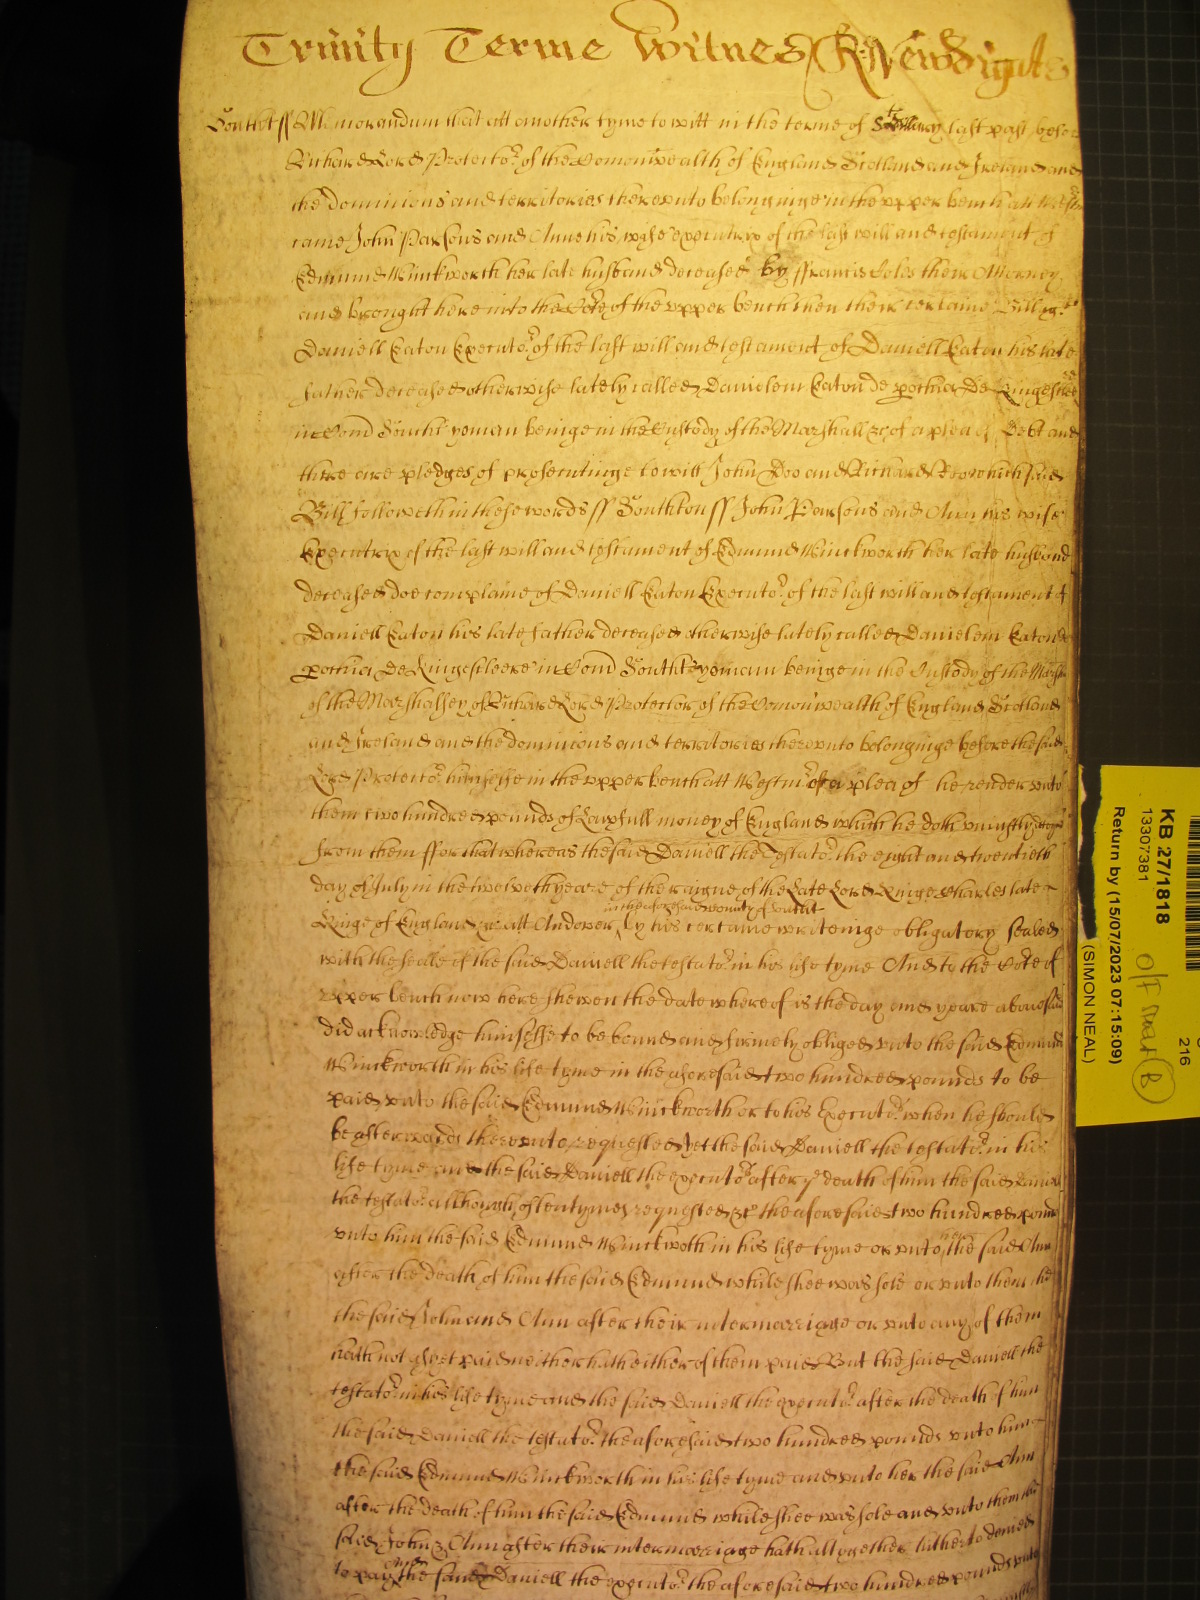 Trinity Terme Witnes R: Newdigate
Southt ss Memorandum that att another tyme to witt in the terme of last past before
Richard Lord Protector of the Comonwealth of England Scotland and Ireland and
the dominions and territories thereunto belonginge in the upper bench att Westm
came John Parsons and Anne his wife executrix of the last will and testament of
Edmund Winckworth her late husband deceased by Ffrancis Coles their Attorney
and brought here into the Corte of the upper bench then their certaine Bill agt
Daniell Eaton Executor of the last will and testament of Daniell Eaton his late
father deceased otherwise lately called Danielem Eaton de pochia De
in Com Southt yoman beinge in the Custody of the Marshall &c of a plea of Debt and
there are pledges of prosecutinge to witt John Doo and Richard Roo which said
Bill followeth in these words ss Southton ss John Parsons and Ann his wife
Executrix of the last will and testament of Edmund Winckworth her late husband
deceased doe complaine of Daniell Eaton Executor of the last will and testament of
Daniell Eaton his late father deceased otherwise lately called Danielem Eaton de
pochia De Kingescleere in Com Southt yoman beinge in the Custody of the Marsh
of the Marshallsey of Richard Lord Protector of the Comonwealth of England Scotland
and Ireland and the dominions and territories thereunto belonginge before the said
Lord Protector himselfe in the upper bench att Westmr of a plea of he render unto
them two hundred pounds of Lawfull money of England which he doth uniustly
from them Ffor that whereas the said Daniell the Testator the eight and twentieth
day of July in the twelveth yeare of the raigne of the Late Lord Kinge Charles late
in the aforesaid county of Southt
Kinge of England &c att Andover by his certaine writeinge obligatory sealed
with the seale of the said Daniell the testator in his life tyme And to the Corte of
upper bench now here shewen the date whereof is the day and yeare abovesaid
did acknowledge himselfe to be bound and firmely obliged unto the said Edmund
Winckworth in his life tyme in the aforesaid two hundred pounds to be
paid unto the said Edmund Winckworth or to his Executor when he should
be afterwards thereunto requested yet the said Daniell the testator in his
life tyme and the said Daniell the executor after ye death of him the said Daniel
the testator allthough oftentymes requested &c the aforesaid two hundred pounds
unto him the said Edmund Winckwoth in his life tyme or unto her the said Ann
after the death of him the said Edmund while shee was sole or unto them the
the said John and Ann after their intermarriage or unto any of them
hath not as yet paid neither hath either of them paid But the said Daniell the
testator in his life tyme and the said Daniell the executor after the death of him
the said Daniell the testator the aforesaid two hundred pounds unto him
the said Edmund Winckworth in his life tyme and unto her the said Ann
after the death of him the said Edmund while shee was sole and unto them the
said John & Ann after their intermarriage hath alltogether hitherto denied
to pay the said Daniell the executor the aforesaid two hundred pounds unto
KB 27/1818
13307381
Return by (15/07/2023 07:15:09)
(SIMON NEAL)
216